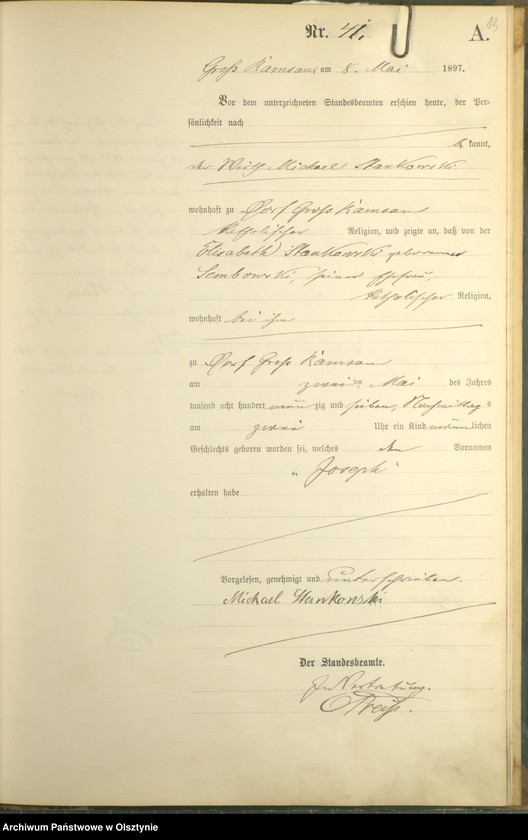 13
Nr. 41. A.
Groß Kamsau am 8. Mai 1897.
Vor dem unterzeichneten Standesbeamten erschien heute, der Per-
sönlichkeit nach
kannt,
der Wirth Michael Stankowski
wohnhaft zu Dorf Groß Kamsau
katholischer Religion, und zeigte an, daß von der
Elisabeth Stankowski geborenen
Sembowski, seiner Ehefrau,
katholischer Religion,
wohnhaft bei ihm
zu Dorf Groß Kamsau
am zweiten Mai des Jahres
tausend acht hundert neunzig und sieben, Nachmittags
um zwei Uhr ein Kind männlichen
Geschlechts geboren worden sei, welches den Vornamen
„Joseph“
erhalten habe
Vorgelesen, genehmigt und unterschrieben.
Michael Stankowski
Der Standesbeamte.
In Vertretung.
Archiwum Państwowe w Olsztynie